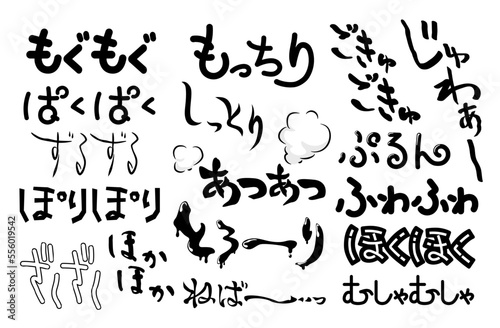 もぐもぐ
ぱくぱく
ずるずる
ぽりぽり
ざくざく
ほか
ほか
もっちり
しっとり
あつあつ
とろ〜り
ねば〜…っ
ごきゅ
ごきゅ
じゅわぁー
ぷるん
ふわふわ
ほくほく
むしゃむしゃ
Adobe Stock | #556019542